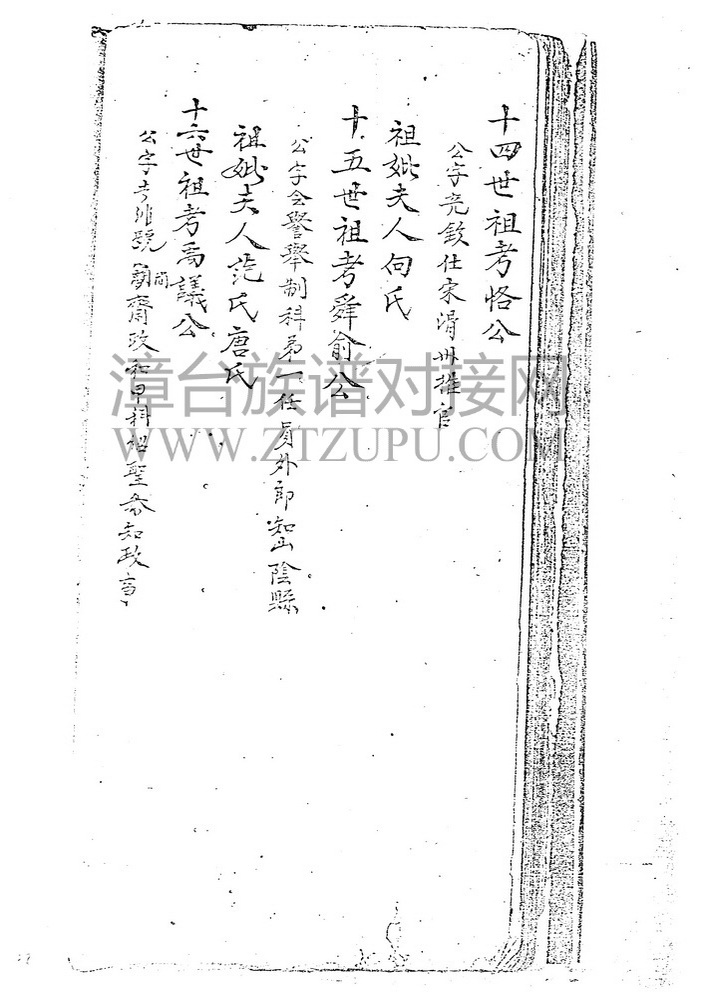 十四世祖考恪公
公字 仕宋滑州推官
祖妣夫人向氏
十五世祖考舜俞公
公字 舉制科第一任員外郎知山陰縣
祖妣夫人范氏唐氏
十六世祖考禹議公
公字 號簡齋政和甲科紹聖參知政事
漳台族谱对接网
WWW.ZTZUPU.COM